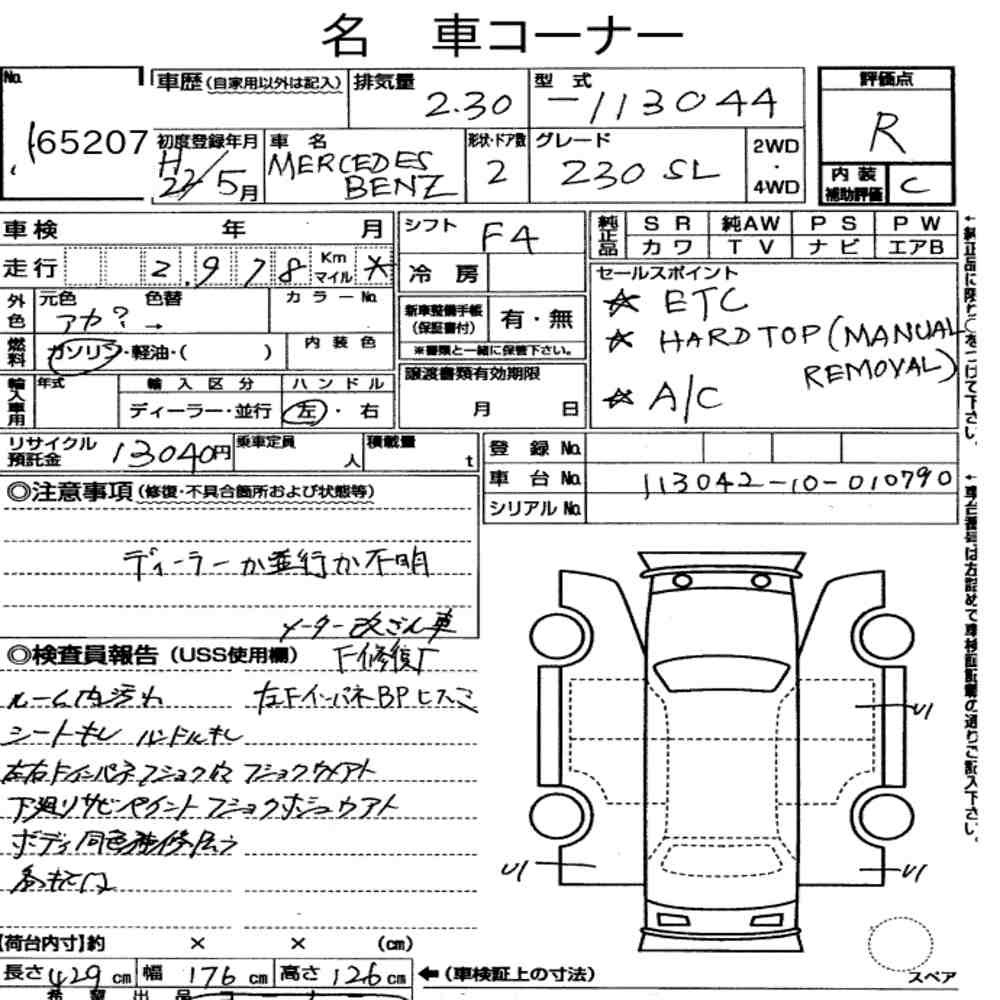 名 車コーナー
No. 165207
車歴(自家用以外は記入) 排気量 2.30 型式 -113044 評価点 R
初度登録年月 H22/5月 車名 MERCEDES BENZ 形状・ドア数 2 グレード 230 SL 2WD・4WD 内装補助評価 C
車検 年 月 シフト F4 純正品 SR 純AW PS PW
カワ TV ナビ エアB
走行 2.978 Km マイル * 冷房
セールスポイント
☆ ETC
☆ HARDTOP (MANUAL REMOVAL)
☆ A/C
外色 元色 色替 カラーNo.
アカ? →
新車整備手帳(保証書付) 有・無
※書類と一緒に保管下さい。
燃料 ガソリン・軽油・( ) 内装色
譲渡書類有効期限
月 日
輸入車用 年式 輸入区分 ハンドル
ディーラー・並行 左・右
リサイクル預託金 13040円 乗車定員 人 積載量 t
登録No.
車台No. 113042-10-010790
シリアルNo.
←純正品に限り○をつけて下さい。
←車台番号は左詰めで車検証記載の通りご記入下さい。
◎注意事項(修復・不具合箇所および状態等)
ディーラーか並行か不明
メーター改ざん車
◎検査員報告(USS使用欄) F修復F
ルーム内汚れ 左FインパネBPヒスミ
シートキレ ハンドルキレ
左右Fインパネ
下廻りサビペイント
ボディ同色
U1
U1 U1
【荷台内寸】約 × × (cm)
長さ 429 cm 幅 176 cm 高さ 126 cm ←(車検証上の寸法)
スペア